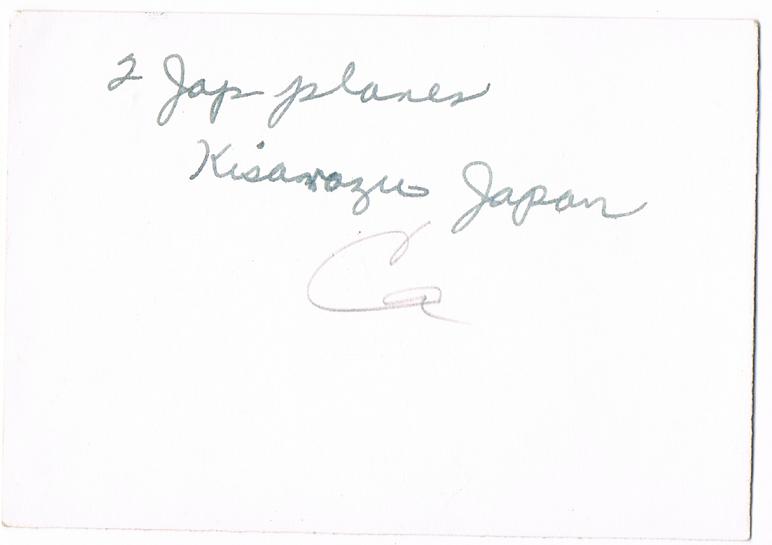 2 Jap planes
Kisarazu Japan
Ca